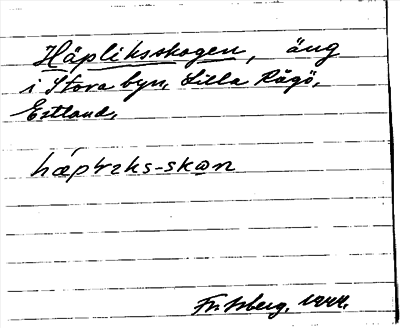 Häpliksskogen, äng
i Stora byn, Lilla Rågö,
Estland.
hæplıks-skan
Fr. Isberg, 1944.